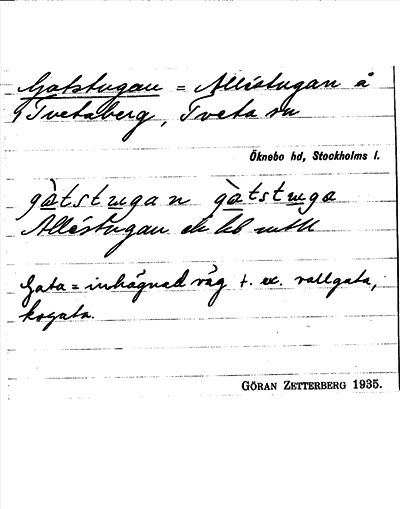 Gatstugan = Alléstugan å
Tvetaberg, Tveta sn
Öknebo hd, Stockholms l.
gàtstugan gàtstuga
Alléstugan ek kb
Gata = inhägnad väg t. ex. vallgata,
kogata.
GÖRAN ZETTERBERG 1935.